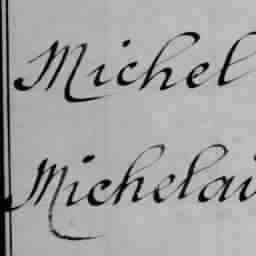 Michel
Michelai